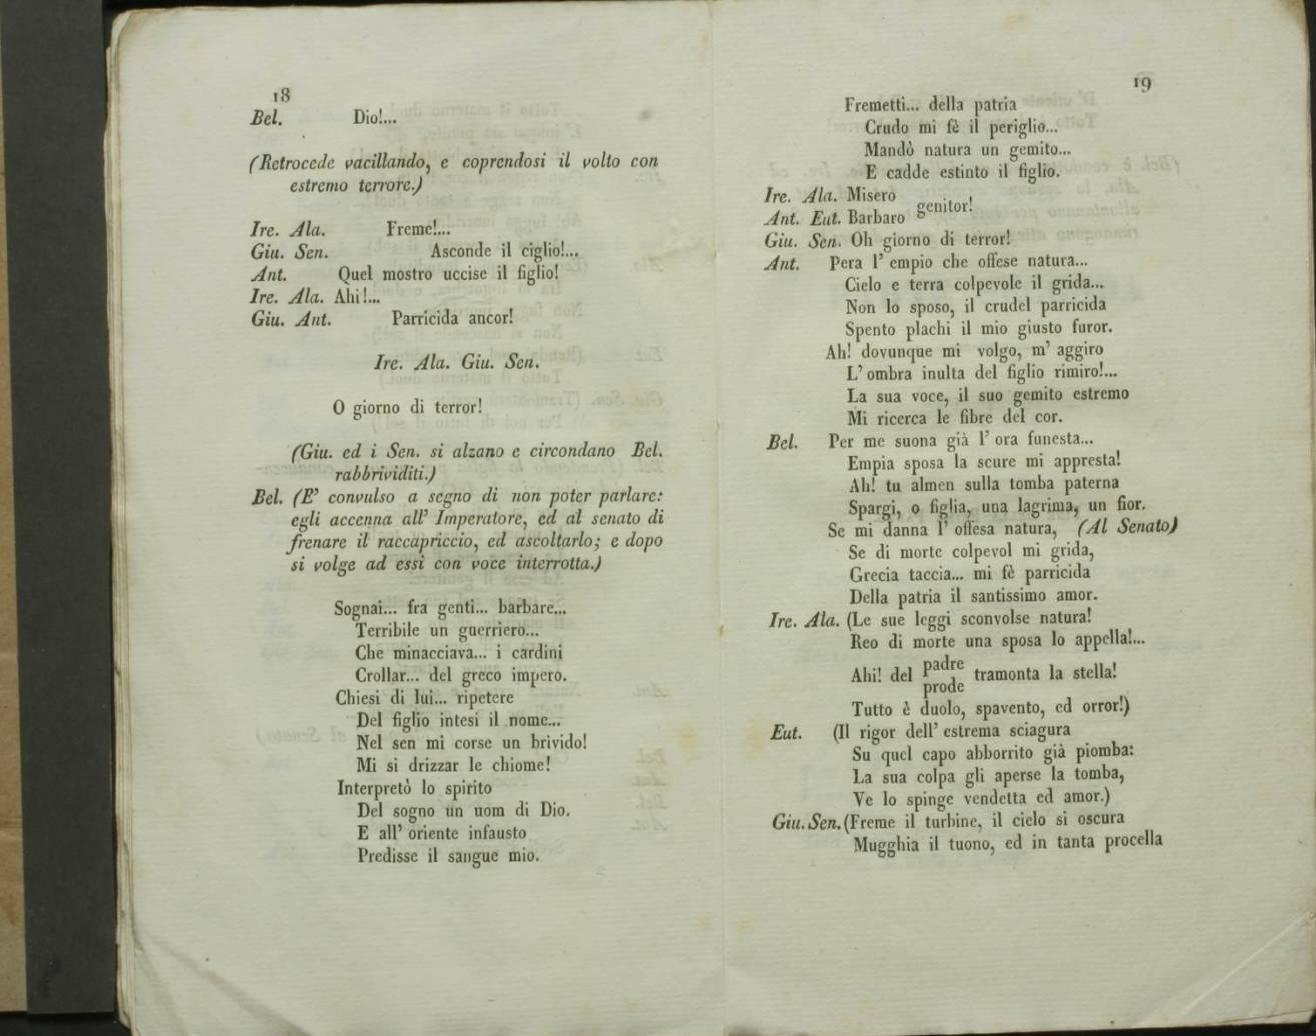 18
Bel. Dio!...
(Retrocede vacillando, e coprendosi il volto con
estremo terrore.)
Ire. Ala. Freme!...
Giu. Sen. Asconde il ciglio!...
Ant. Quel mostro uccise il figlio!
Ire. Ala. Ahi!...
Giu. Ant. Parricida ancor!
Ire. Ala. Giu. Sen.
O giorno di terror!
(Giu. ed i Sen. si alzano e circondano Bel.
rabbrividiti.)
Bel. (E' convulso a segno di non poter parlare:
egli accenna all' Imperatore, ed al senato di
frenare il raccapriccio, ed ascoltarlo; e dopo
si volge ad essi con voce interrotta.)
Sognai... fra genti... barbare...
Terribile un guerriero...
Che minacciava... i cardini
Crollar... del greco impero.
Chiesi di lui... ripetere
Del figlio intesi il nome...
Nel sen mi corse un brivido!
Mi si drizzar le chiome!
Interpretò lo spirito
Del sogno un uom di Dio.
E all' oriente infausto
Predisse il sangue mio.
19
Fremetti... della patria
Crudo mi fè il periglio...
Mandò natura un gemito...
E cadde estinto il figlio.
Ire. Ala. Misero
genitor!
Ant. Eut. Barbaro
Giu. Sen. Oh giorno di terror!
Ant. Pera l' empio che offese natura...
Cielo e terra colpevole il grida...
Non lo sposo, il crudel parricida
Spento plachi il mio giusto furor.
Ah! dovunque mi volgo, m' aggiro
L' ombra inulta del figlio rimiro!...
La sua voce, il suo gemito estremo
Mi ricerca le fibre del cor.
Bel. Per me suona già l' ora funesta...
Empia sposa la scure mi appresta!
Ah! tu almen sulla tomba paterna
Spargi, o figlia, una lagrima, un fior.
Se mi danna l' offesa natura, (Al Senato)
Se di morte colpevol mi grida,
Grecia taccia... mi fè parricida
Della patria il santissimo amor.
Ire. Ala. (Le sue leggi sconvolse natura!
Reo di morte una sposa lo appella!...
Ahi! del padre tramonta la stella!
prode
Tutto è duolo, spavento, ed orror!)
Eut. (Il rigor dell' estrema sciagura
Su quel capo abborrito già piomba:
La sua colpa gli aperse la tomba,
Ve lo spinge vendetta ed amor.)
Giu. Sen. (Freme il turbine, il cielo si oscura
Mugghia il tuono, ed in tanta procella